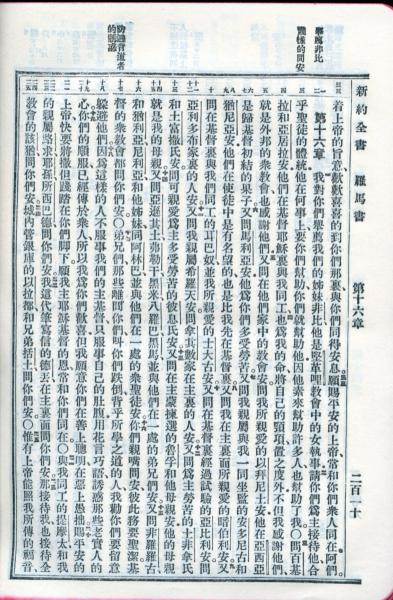 舉薦非比
幾樣的問安
防避背道者
的懇誡
新約全書 羅馬書 第十六章 二百二十
着上帝的旨意歡歡喜喜的到你們那裏與你們同得安息願賜平安的上帝常和你們衆人同在阿們
第十六章 我對你們舉薦我們的姊妹非比他是堅革哩教會中的女執事請你們為主接待他合
乎聖徒的體統他在何事上要你們幫助你們就幫助他因他素來幫助許多人也幫助了我〇問百基
拉和亞居拉安他們在基督耶穌裏與我同工也為我的命將自己的頸項置之度外不但我感謝他們
就是外邦的衆教會也感謝他們又問在他們家中的教會安問我所親愛的以拜尼土安他在亞西亞
是歸基督初結的果子又問馬利亞安他為你們多受勞苦又問我親屬與我一同坐監的安多尼古和
猶尼亞安他們在使徒中是有名望的也是比我先在基督裏又問我在主裏面所親愛的暗伯利安又
問在基督裏與我們同工的耳巴奴並我所親愛的士大古安又問在基督裏經過試驗的亞比利安問
亞利多布家裏的人安又問我親屬希羅天安問拿其數家在主裏的人安又問為主勞苦的士非拿氏
和士富撒氏安問可親愛為主多受勞苦的彼息氏安又問在主蒙揀選的魯孚和他母親安他的母親
就是我的母親又問亞遜其土弗勒干黑米八羅巴黑馬並與他們在一處的弟兄們安又問非羅羅古
和猶利亞尼利亞和他姊妹同阿林巴並與他們在一處的衆聖徒安你們親嘴問安彼此務要聖潔基
督的衆教會都問你們安〇弟兄們那些離間你們叫你們跌倒背乎所學之道的人我勸你們要留意
躲避他們因為這樣的人不服事我們的主基督只服事自己的肚腹用花言巧語誘惑那些老實人的
心你們的順服已經傳於衆人所以我為你們歡喜但我願意你們在善上聰明在惡上愚拙賜平安的
上帝快要將撒但踐踏在你們脚下願我主耶穌基督的恩常和你們同在〇與我同工的提摩太和我
的親屬路求耶孫所西巴德問你們安我這代筆寫信的德丟在主裏面問你們安那接待我也接待全
教會的該猶問你們安城內管銀庫的以拉都和兄弟括土問你們安〇惟有上帝能照我所傳的福音